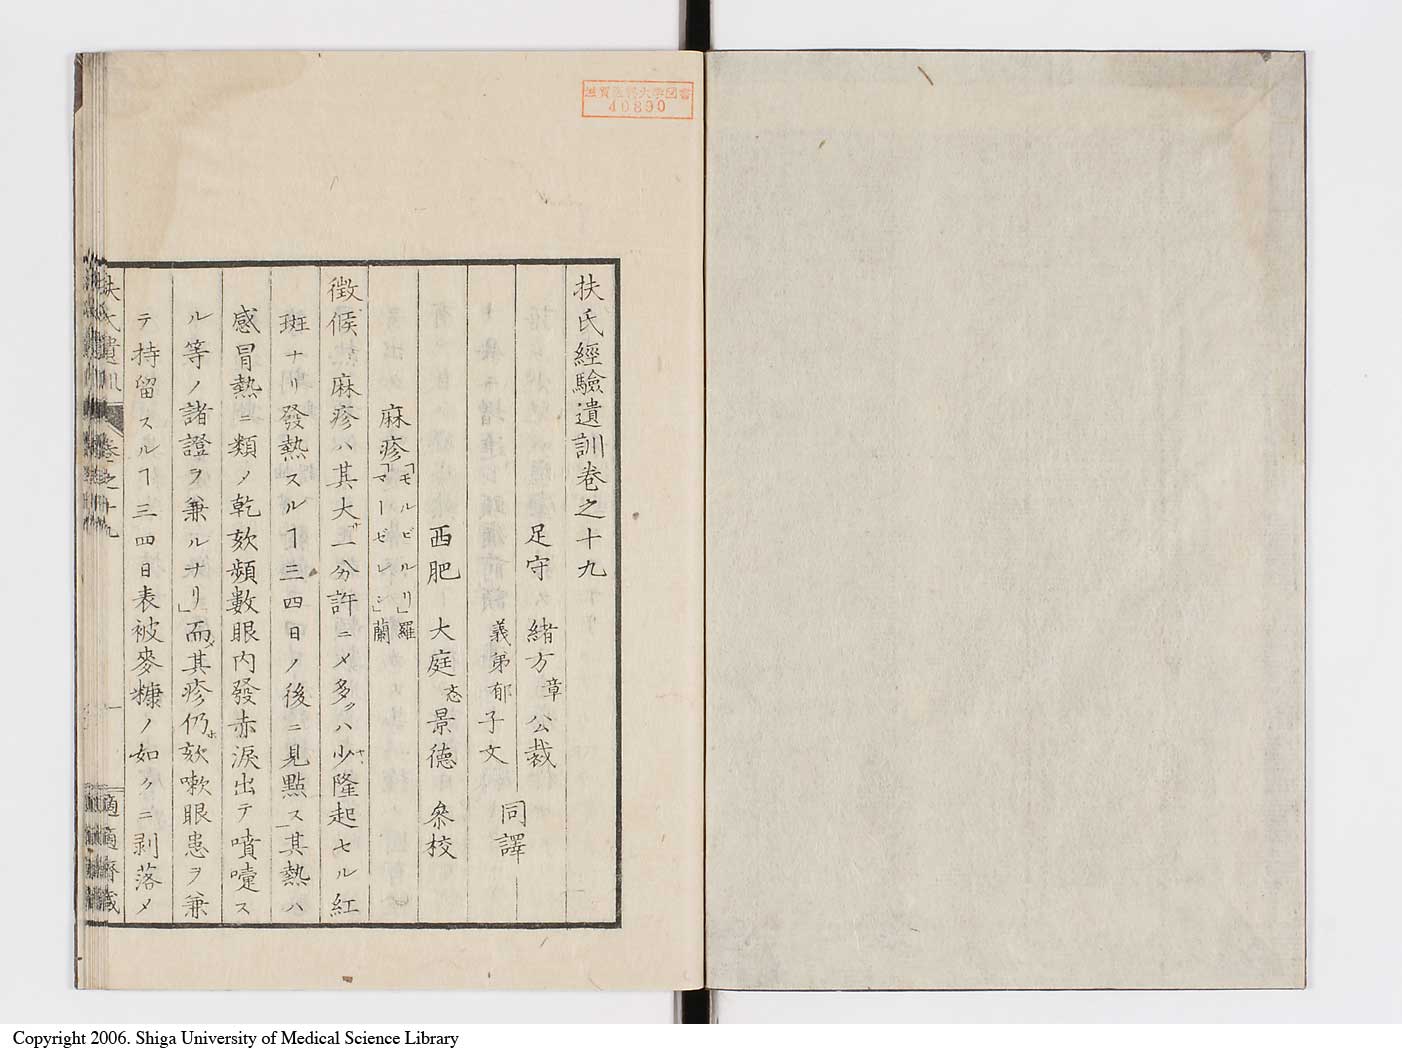 滋賀医科大学図書
40890
扶氏經驗遺訓卷之十九
足守 緒方章公裁
義弟郁子文 同譯
西肥 大庭忞景德 叅校
麻疹「モルビルリ」羅「マーゼレン」蘭
徴候 麻疹ハ其大サ一分許ニ〆多クハ少ク隆起セル紅
斑ナリ發熱スルヿ三四日ノ後ニ見點ス其熱ハ
感冒熱ニ類ノ乾欬頻數眼内發赤淚出テ噴嚔ス
ル等ノ諸證ヲ兼ルナリ」而〆其疹仍ホ欬嗽眼患ヲ兼
テ持留スルヿ三四日表被麥糠ノ如クニ剥落〆
扶氏遺訓 卷之十九 一 適適齋藏
Copyright 2006. Shiga University of Medical Science Library